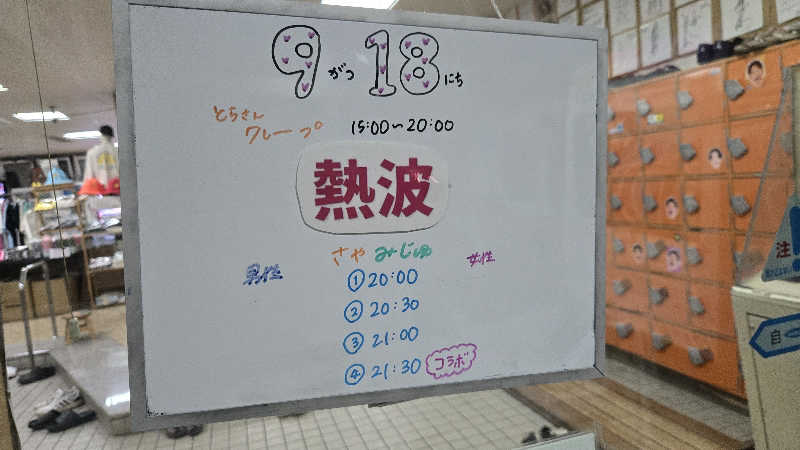 9がつ18にち
とらさん
クレープ 15:00～20:00
熱波
さや みじゅ
男性 女性
①20:00
②20:30
③21:00
④21:30 コラボ
注
自